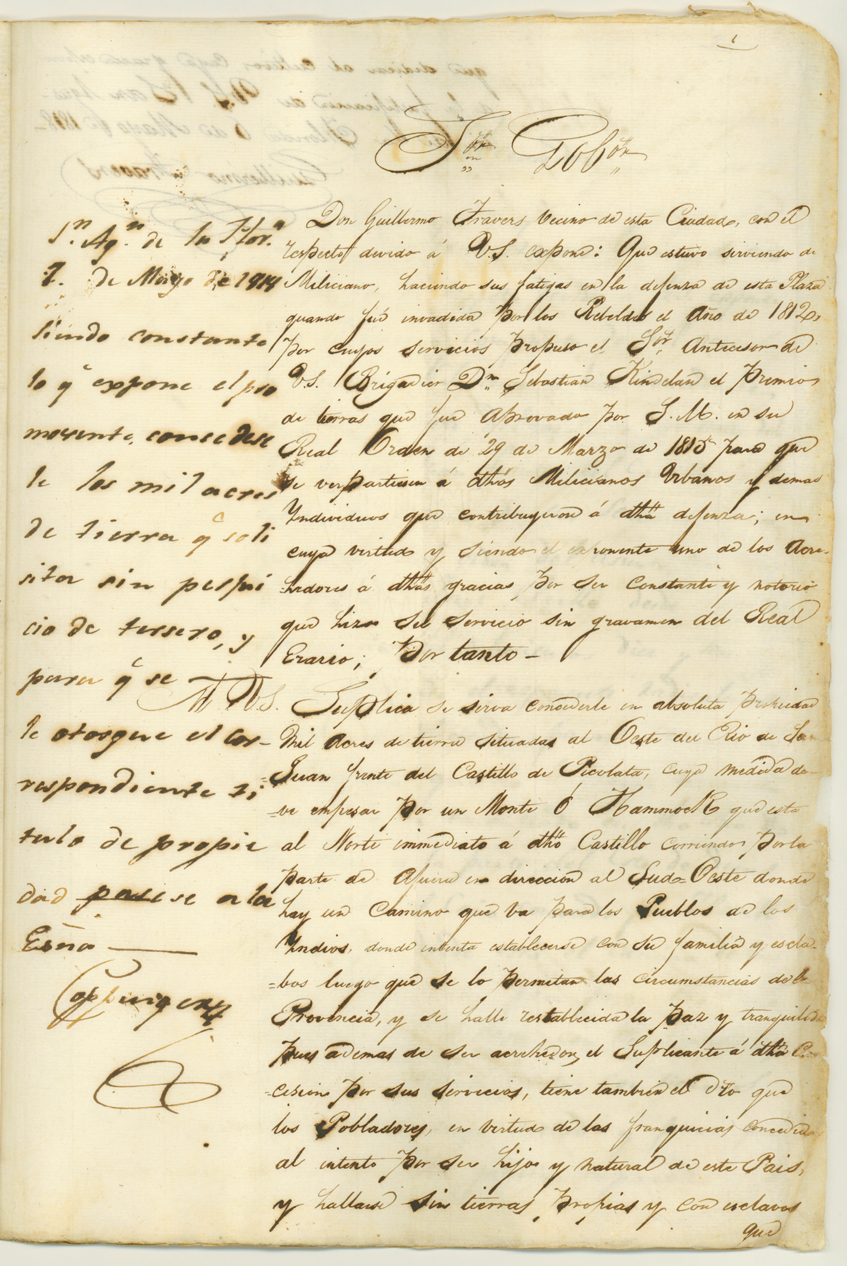 1
Sor. Gobor.
Don Guillermo Travers vecino de esta Ciudad, con el
respecto divido á V.S. expone: Que estuvo sirviendo de
Miliciano, haciendo sus fatigas en la defenza de esta Plaza
quando fué invadida por los Rebeldes el Año de 1812,
por cuyos servicios propuso el Sor. Antecesor de
V.S. Brigadier Dn. Sebastian Kindelan el Premio
de tierras que fue aprovado por S.M. en su
Real Orden de 29 de Marzo de 1815 para que
se verpartiesen á dhos Milicianos Urbanos y demas
Yndividuos que contribuyeron á dha defenza; en
cuya virtud y siendo el exponente uno de los acre-
hedores á dhas gracias por ser constante y notorio
que hizo su servicio sin gravamen del Real
Erario; Por tanto –
A V.S. Suplica se sirva concederle en absoluta propiedad
Mil acres de tierra situadas al Oeste del Rio de San
Juan frente del Castillo de Picolata, cuya medida de-
ve empesar por un Monte ó Hammock que esta
al Norte immediato á dho Castillo corriendo por la
parte de afuera en direccion al Sud-Oeste donde
hay un Camino que va para los Pueblos de los
Yndios, donde intenta establecerse con su familia y escla-
=bos luego que se lo permitan las circumstancias de la
Provincia, y se halle restablecida la paz y tranquilidad
pues ademas de ser acrehedor, el Suplicante á dha C
=cesion por sus servicios, tiene tambien el dro que
los Pobladores, en virtud de las franquicias concedidas
al intento por ser hijo y natural de este Pais,
y hallarse sin tierras propias y con esclavos
que
Sn. Agn. de la Flora.
7. de Mayo de 1818
Siendo constante
lo q̃ expone el pro
movente, concedese
le los mil acres
de tierra q̃ soli
sita sin perjui
cio de tersero, y
para q̃ se
le otorgue el cor-
respondiente ti
tulo de propie
dad pasese a la
Esña
Coppinger